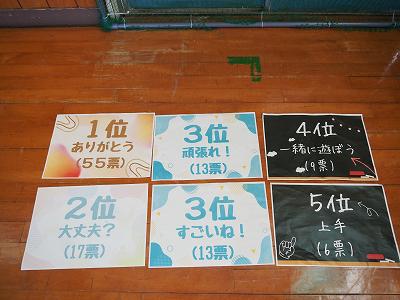 1位
ありがとう
(55票)
2位
大丈夫?
(17票)
3位
頑張れ!
(13票)
3位
すごいね!
(13票)
4位
一緒に遊ぼう
(9票)
5位
上手
(6票)